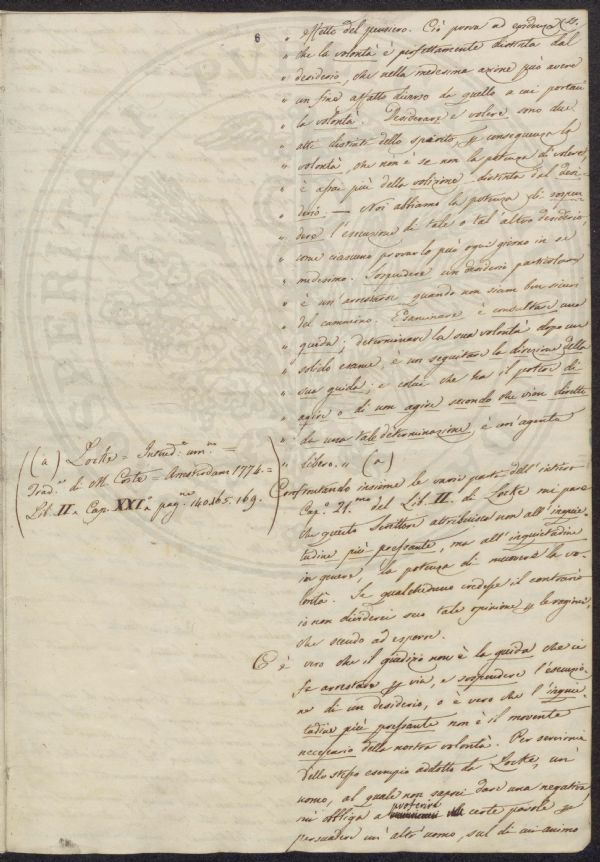 6
" effetto del pensiero. Ciò prova ad evidenza
" che la volontà è perfettamente distinta dal
" desiderio, che nella medesima azione può avere
" un fine affatto diverso da quello a cui portaci
" la volontà. Desiderare e volere sono due
" atti distinti dello spirito, e conseguenza la
" volontà, che non è se non la potenza di volere,
" è assai più della volizione distinta dal desi-
" derio. — Noi abbiamo la potenza di sospen-
" dere l'esecuzione di tale o tal altro desiderio,
" come ciascuno provar lo può ogni giorno in se
" medesimo. Sospendere un desiderio particolare
" è un'arrestarsi quando non siam ben sicuri
" del cammino. Esaminare è consultare una
" guida; determinare la sua volontà dopo un
" solido esame, è un seguitare la direzione della
" sua guida; e colui che ha il potere di
" agire o di non agire secondo che vien diretto
" da una tale determinazione, è un'agente
" libero. " (a)
(a) Locke = =
Trad.ne di M. Coste = Amsterdam 1774. =
Lib. II. Cap. XXI. pag.ne 140. 165. 169.
Confrontando insieme le varie parti dell'intiero
Cap.o 21.mo del Lib. II. di Locke mi pare
che questo Scrittore attribuisca non all'inquie-
tudine più pressante, ma all'inquietudine
in genere, la potenza di muovere la vo-
lontà. Se qualcheduno credesse il contrario
io non dividerei seco tale opinione le ragioni,
che stendo ad esporre.
O è vero che il giudizio non è la guida che ci
fa arrestare via, e sospendere l'esecuzio-
ne di un desiderio, o è vero che l'inquie-
tudine più pressante non è il movente
necessario della nostra volontà. Per servirmi
dello stesso esempio addotto da Locke, un'
uomo, al quale non saprei dare una negativa
mi obbliga a proferire certe parole
persuadere un'altr'uomo, sul di cui animo